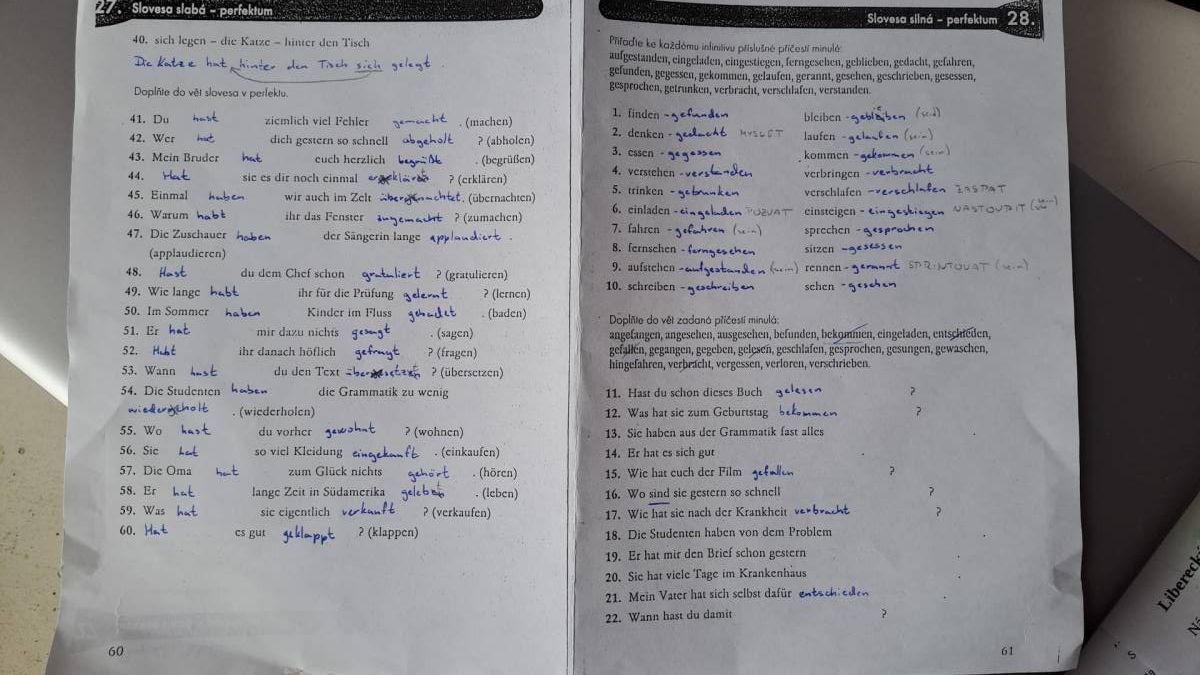 27. Slovesa slabá – perfektum
40. sich legen – die Katze – hinter den Tisch
Die Katze hat hinter den Tisch sich gelegt.
Doplňte do vět slovesa v perfektu.
41. Du hast ziemlich viel Fehler gemacht . (machen)
42. Wer hat dich gestern so schnell abgeholt ? (abholen)
43. Mein Bruder hat euch herzlich begrüßt . (begrüßen)
44. Hat sie es dir noch einmal ? (erklären)
45. Einmal haben wir auch im Zelt übernachtet. (übernachten)
46. Warum habt ihr das Fenster zugemacht ? (zumachen)
47. Die Zuschauer haben der Sängerin lange applaudiert .
(applaudieren)
48. Hast du dem Chef schon gratuliert ? (gratulieren)
49. Wie lange habt ihr für die Prüfung gelernt ? (lernen)
50. Im Sommer haben Kinder im Fluss gebadet . (baden)
51. Er hat mir dazu nichts gesagt . (sagen)
52. ihr danach höflich gefragt ? (fragen)
53. Wann hast du den Text ? (übersetzen)
54. Die Studenten haben die Grammatik zu wenig
wiederholt . (wiederholen)
55. Wo hast du vorher gewohnt ? (wohnen)
56. Sie hat so viel Kleidung eingekauft . (einkaufen)
57. Die Oma hat zum Glück nichts gehört . (hören)
58. Er hat lange Zeit in Südamerika gelebt . (leben)
59. Was hat sie eigentlich verkauft ? (verkaufen)
60. Hat es gut geklappt ? (klappen)
60
Slovesa silná – perfektum 28.
Přiřaďte ke každému infinitivu příslušné příčestí minulé:
aufgestanden, eingeladen, eingestiegen, ferngesehen, geblieben, gedacht, gefahren,
gefunden, gegessen, gekommen, gelaufen, gerannt, gesehen, geschrieben, gesessen,
gesprochen, getrunken, verbracht, verschlafen, verstanden.
1. finden - gefunden bleiben - geblieben (sein)
2. denken - gedacht MYSLET laufen - gelaufen (sein)
3. essen - gegessen kommen - gekommen (sein)
4. verstehen - verstanden verbringen - verbracht
5. trinken - getrunken verschlafen - verschlafen ZASPAT
6. einladen - eingeladen POZVAT einsteigen - eingestiegen NASTOUPIT (sein)
7. fahren - gefahren (sein) sprechen - gesprochen
8. fernsehen - ferngesehen sitzen - gesessen
9. aufstehen - aufgestanden (sein) rennen - gerannt SPRINTOVAT (sein)
10. schreiben - geschreiben sehen - gesehen
Doplňte do vět zadaná příčestí minulá:
angefangen, angesehen, ausgesehen, befunden, bekommen, eingeladen, entschieden,
gefallen, gegangen, gegeben, gelesen, geschlafen, gesprochen, gesungen, gewaschen,
hingefahren, verbracht, vergessen, verloren, verschrieben.
11. Hast du schon dieses Buch gelesen ?
12. Was hat sie zum Geburtstag bekommen ?
13. Sie haben aus der Grammatik fast alles .
14. Er hat es sich gut .
15. Wie hat euch der Film gefallen ?
16. Wo sind sie gestern so schnell ?
17. Wie hat sie nach der Krankheit verbracht ?
18. Die Studenten haben von dem Problem .
19. Er hat mir den Brief schon gestern .
20. Sie hat viele Tage im Krankenhaus .
21. Mein Vater hat sich selbst dafür entschieden .
22. Wann hast du damit ?
61